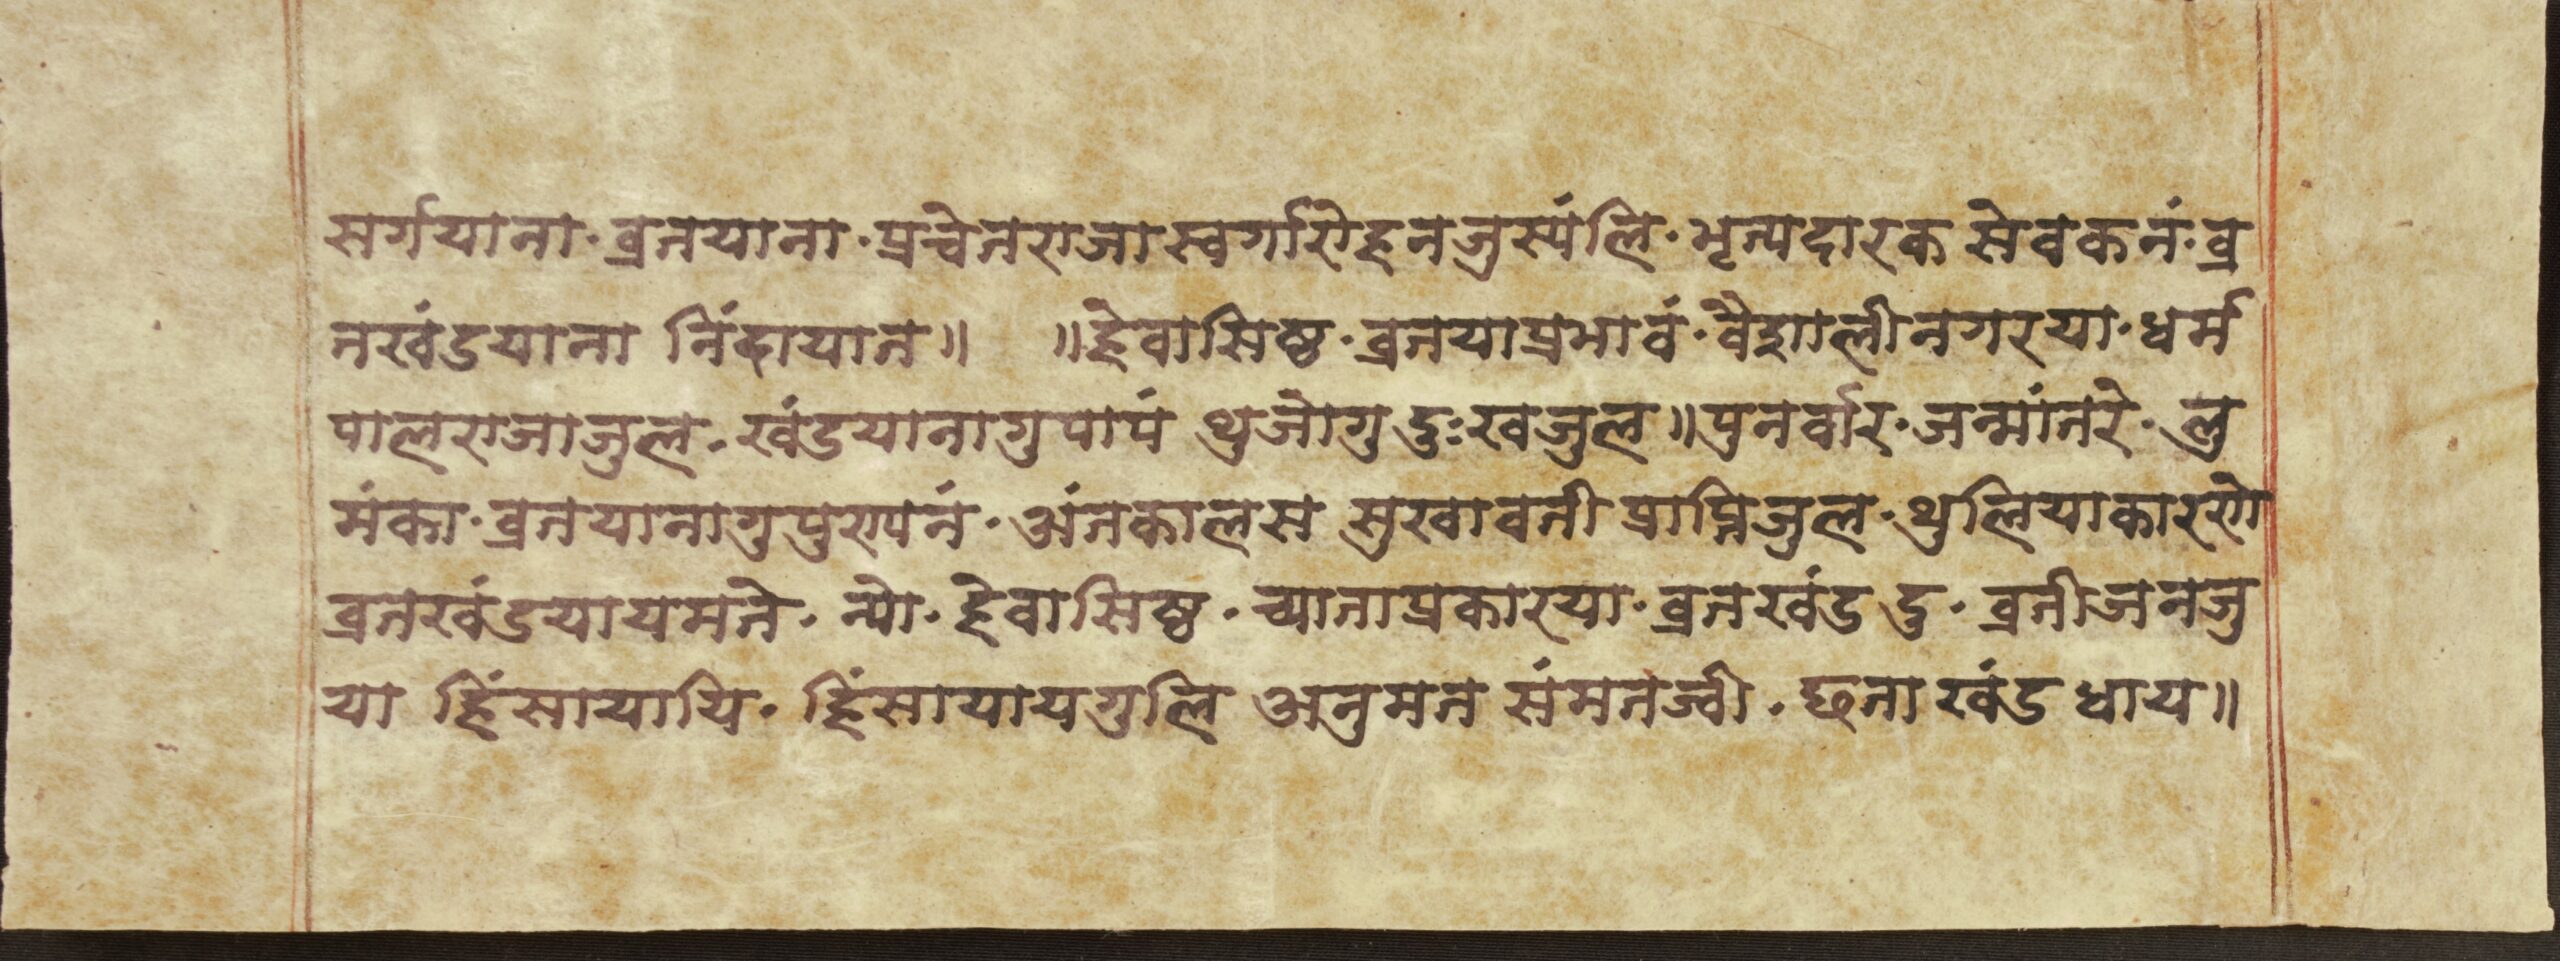 सर्गयाना · व्रतयाना · प्रचेतराजा स्वर्गारोहनजुस्यंलि · भृत्यदारक सेवकनं · व्र
तखंडयाना निंदायात॥ ॥हेवासिष्ठ · व्रतयाप्रभावं · वैशालीनगरया · धर्म
पालराजाजुल · खंडयानागुपापं थुजोगु दुःखजुल॥पुनर्वार · जन्मांतरे · लु
मंका · व्रतयानागुपुण्यनं · अंतकालस सुखावती प्राप्तिजुल · थुलियाकारणे
व्रतखंडयायमते · न्यो · हेवासिष्ठ · च्यानाप्रकारया · व्रतखंड दु · व्रतीजनजु
या हिंसायायि · हिंसायायगुलि अनुमत संमतज्वी · छता खंड धाय॥